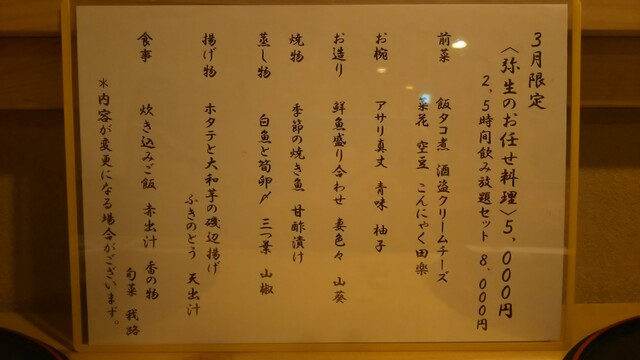 3月限定
〈弥生のお任せ料理〉5,000円
2.5時間飲み放題セット 8,000円
前菜 飯タコ煮 酒盗クリームチーズ
菜花 空豆 こんにゃく田楽
お椀 アサリ真丈 青味 柚子
お造り 鮮魚盛り合わせ 妻色々 山葵
焼物 季節の焼き魚 甘酢漬け
蒸し物 白魚と筍卵〆 三つ葉 山椒
揚げ物 ホタテと大和芋の磯辺揚げ
ふきのとう 天出汁
食事 炊き込みご飯 赤出汁 香の物
*内容が変更になる場合がございます。
旬菜 我路